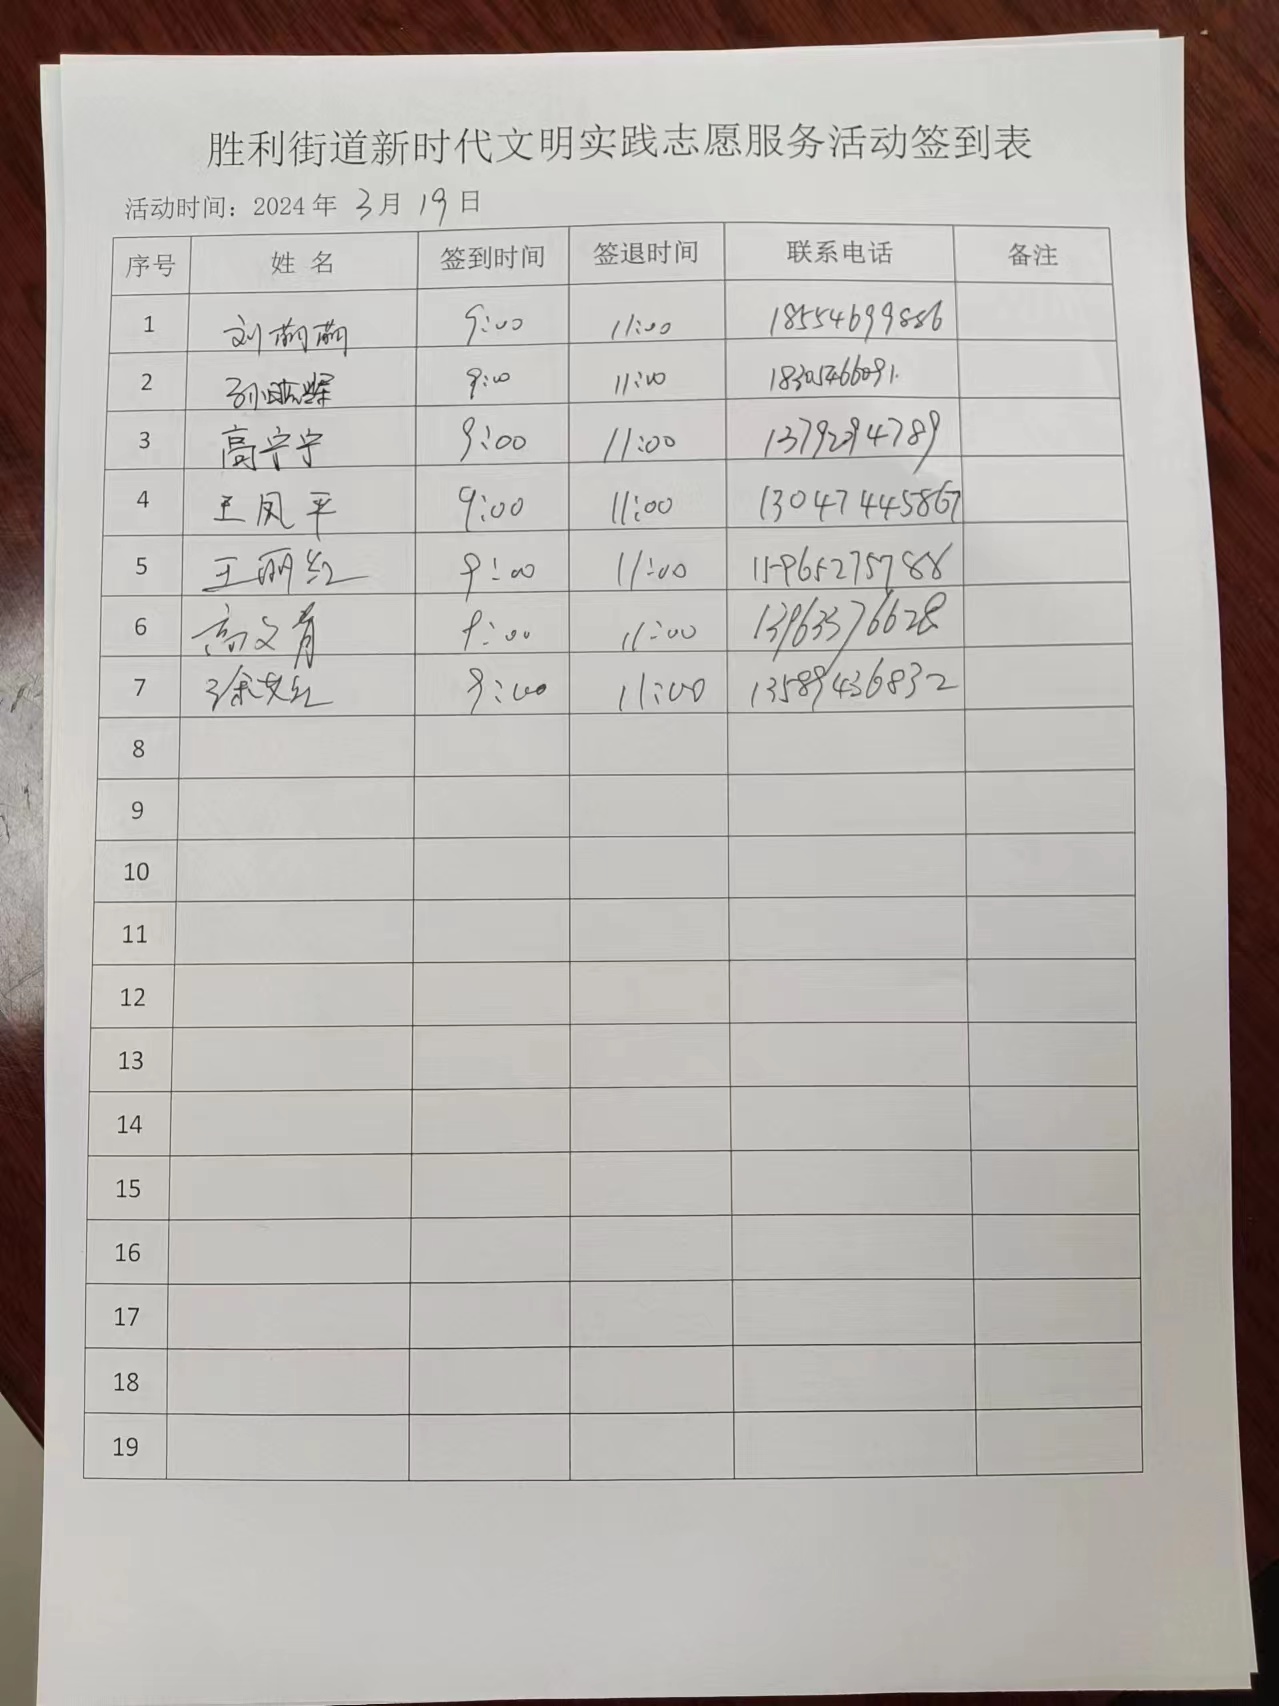 胜利街道新时代文明实践志愿服务活动签到表
活动时间：2024 年 3月 19日
序号 姓 名 签到时间 签退时间 联系电话 备注
1 刘萌萌 9:00 11:00 18554699886
2 9:00 11:00 18305466091
3 高宁宁 9:00 11:00 13792294789
4 王凤平 9:00 11:00 13047445867
5 王丽红 9:00 11:00 15965275788
6 高文青 9:00 11:00 13963376628
7 徐艾红 9:00 11:00 13589436832
8
9
10
11
12
13
14
15
16
17
18
19